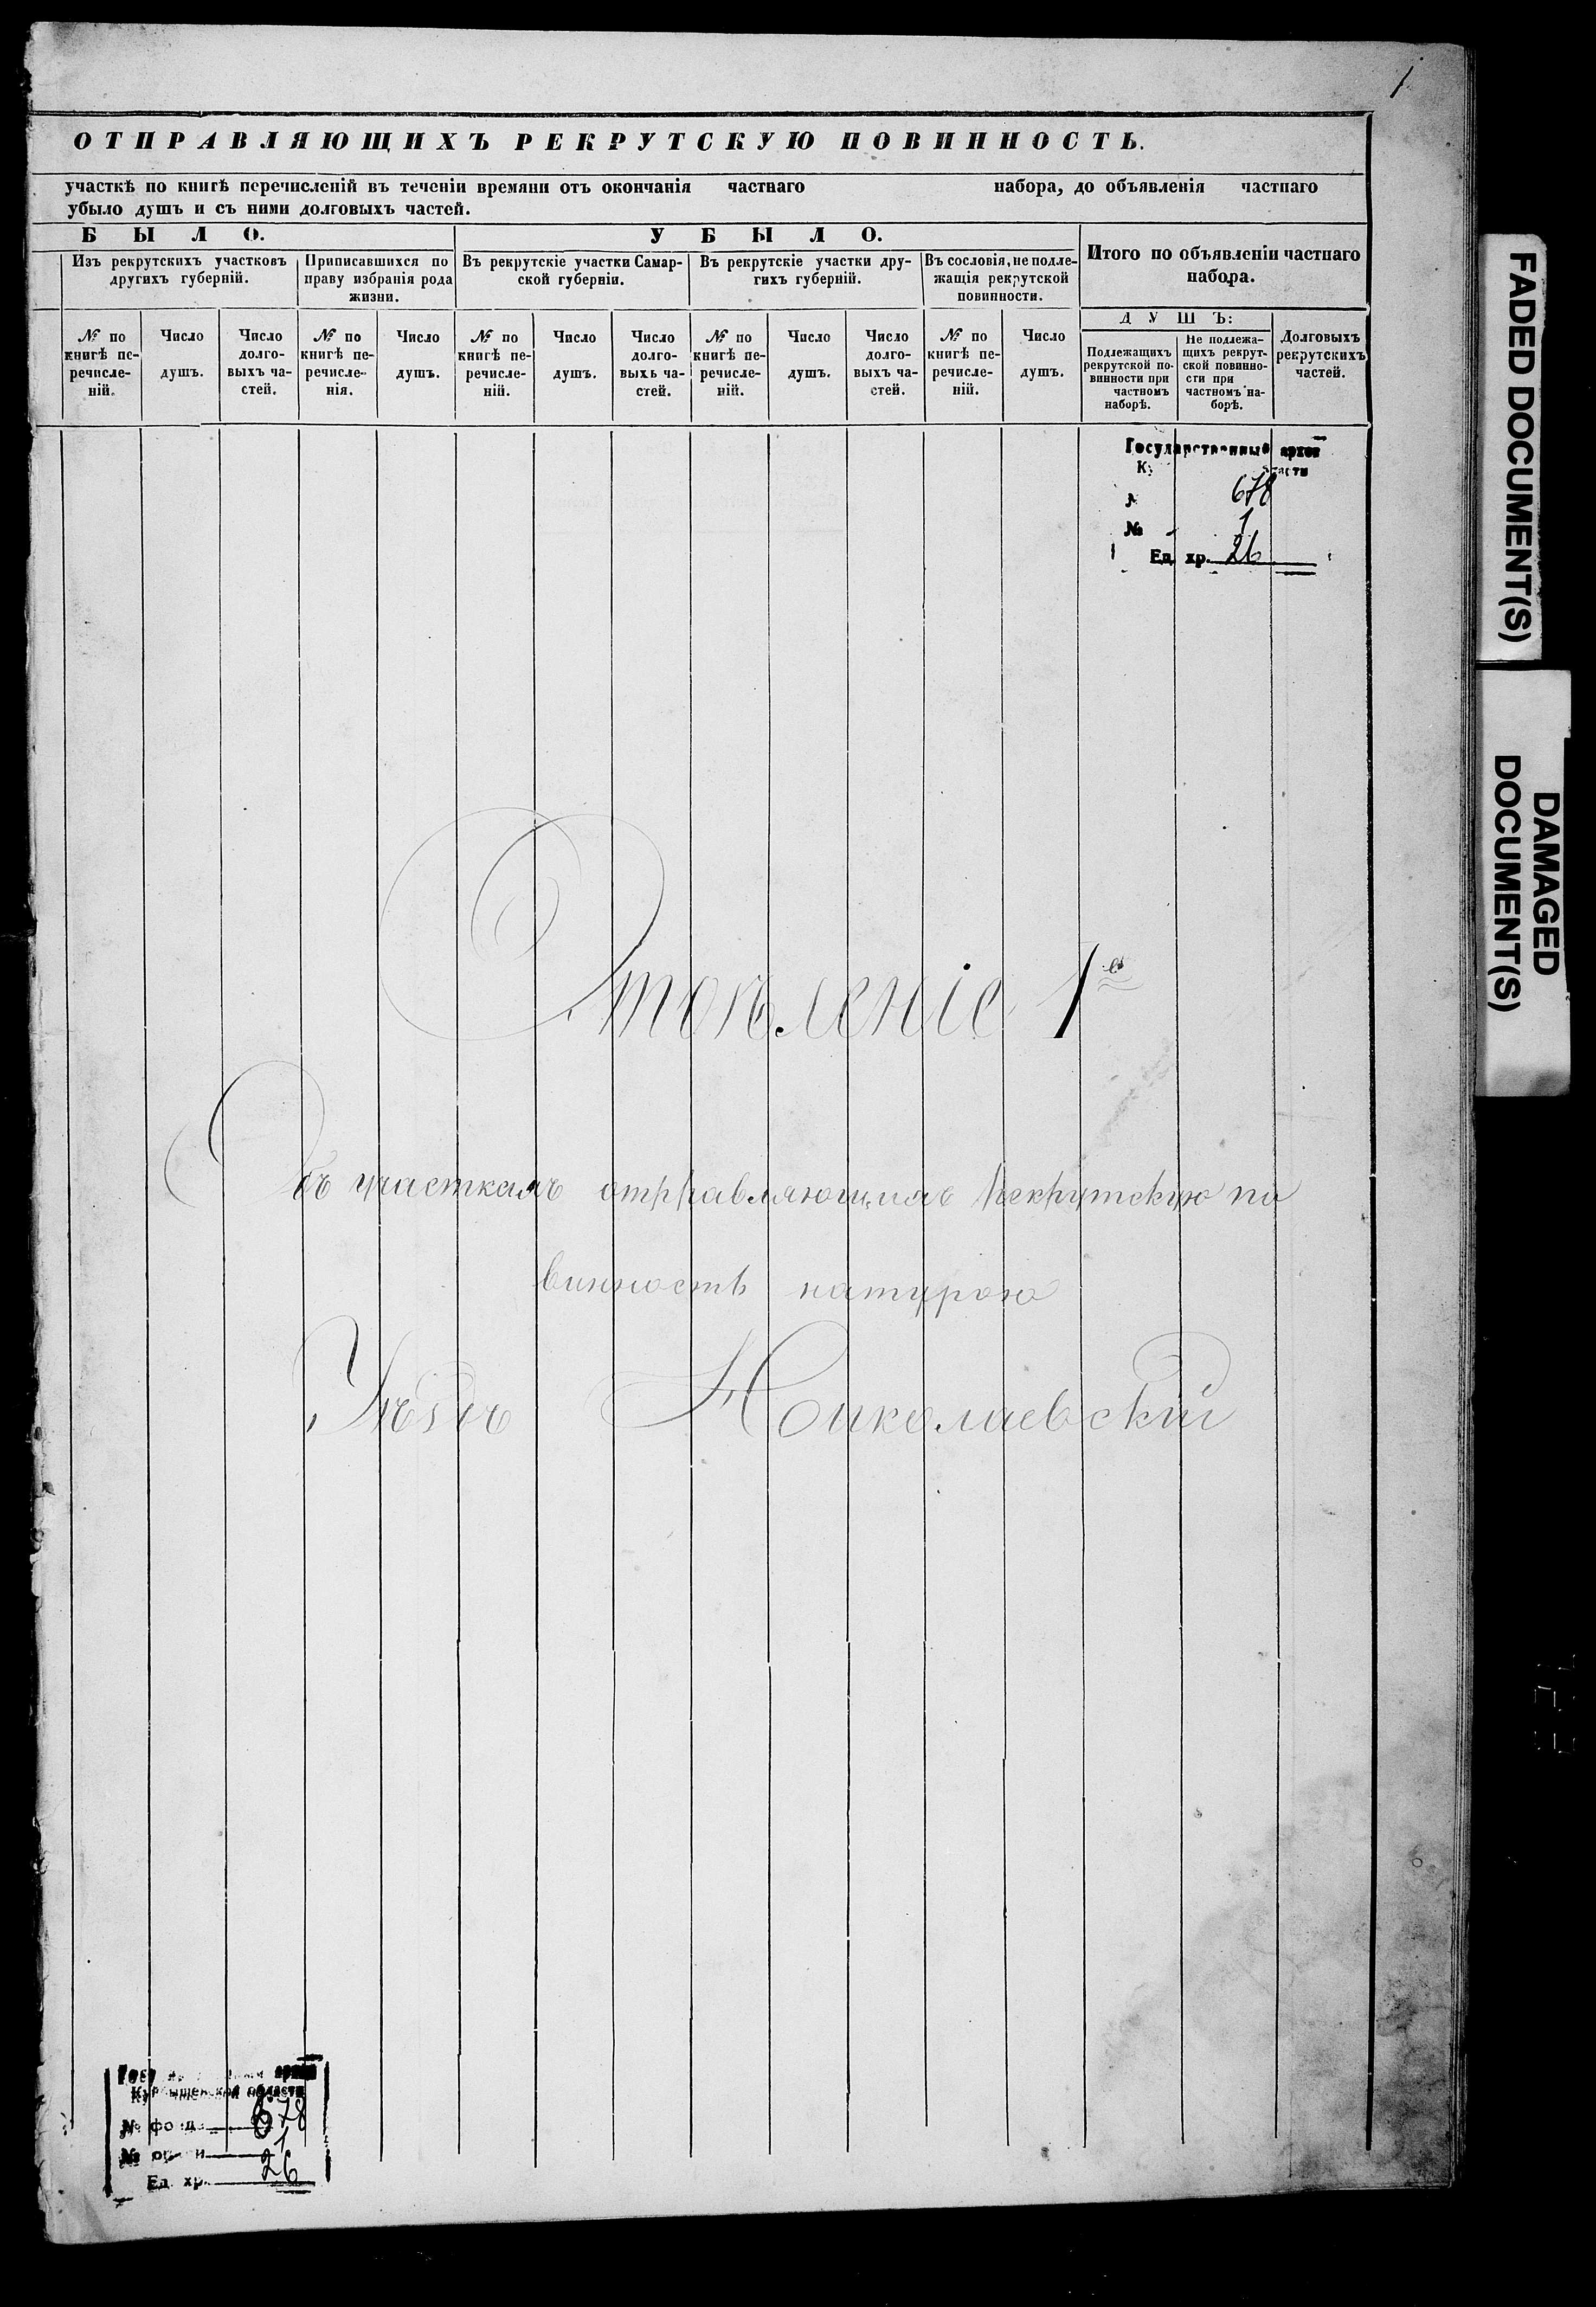 1
ОТПРАВЛЯЮЩИХЪ РЕКРУТСКУЮ ПОВИННОСТЬ.
участкѣ по книгѣ перечисленій въ теченіи времяни отъ окончанія частнаго набора, до объявленія частнаго
убыло душъ и съ ними долговыхъ частей.
БЫЛО.
УБЫЛО.
Итого по объявленіи частнаго
набора.
Изъ рекрутскихъ участковъ
другихъ губерній.
Приписавшихся по
праву избранія рода
жизни.
Въ рекрутскіе участки Самар-
ской губерніи.
Въ рекрутскіе участки дру-
гихъ губерній.
Въ сословія, не подле-
жащія рекрутской
повинности.
ДУШЪ:
№ по
книгѣ пе-
речисле-
ній.
Число
душъ.
Число
долго-
выхъ ча-
стей.
№ по
книгѣ пе-
речисле-
нія.
Число
душъ.
№ по
книгѣ пе-
речисле-
ній.
Число
душъ.
Число
долго-
выхъ ча-
стей.
№ по
книгѣ пе-
речисле-
ній.
Число
душъ.
Число
долго-
выхъ ча-
стей.
№ по
книгѣ пе-
речисле-
ній.
Число
душъ.
Подлежащихъ
рекрутской по-
винности при
частномъ
наборѣ.
Не подлежа-
щихъ рекрут-
ской повинно-
сти при
частномъ на-
борѣ.
Долговыхъ
рекрутскихъ
частей.
Государственный архив
678
№ 1
Ед. хр. 26
Отдѣленіе 1е
Объ участкахъ отправляющихъ рекрутскую по
винность натурою
Уѣздъ Николаевскій
архив
Куйбышевской области
№ фонда 678
№ описи 1
Ед. хр. 26
FADED DOCUMENT(S)
DAMAGED
DOCUMENT(S)